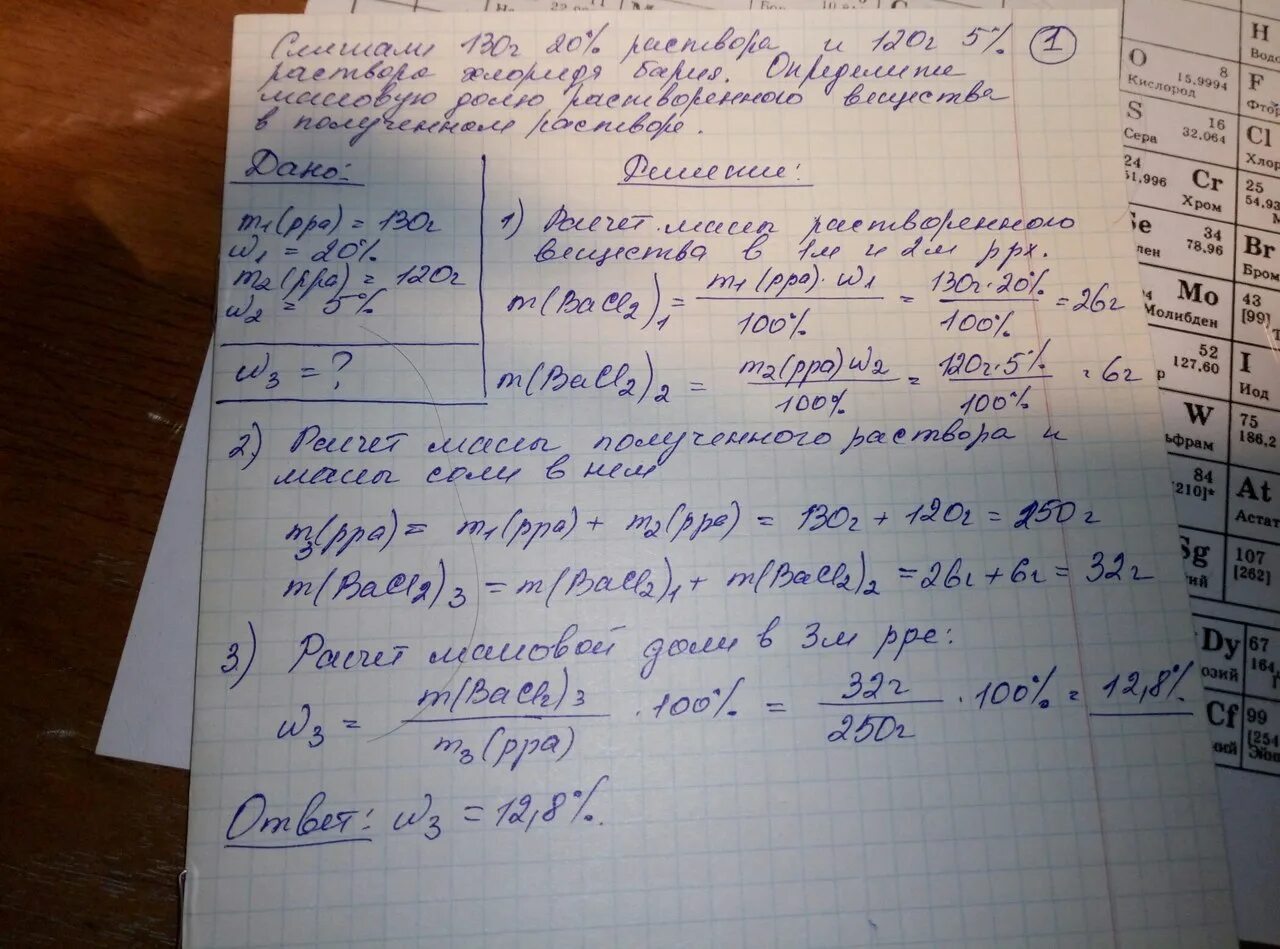 Смешали 130г 20% раствора и 120г 5% ①
раствора хлорида бария. Определите
массовую долю растворенного вещества
в полученном растворе.
Дано:
m1(рра) = 130г
w1 = 20%
m2(рра) = 120г
w2 = 5%
w3 = ?
Решение:
1) Расчет массы растворенного
вещества в 1м и 2м ррх.
m(BaCl2)1 = m1(рра)·w1 / 100% = 130г·20% / 100% = 26г
m(BaCl2)2 = m2(рра)w2 / 100% = 120г·5% / 100% = 6г
2) Расчет массы полученного раствора и
массы соли в нем
m3(рра) = m1(рра) + m2(рра) = 130г + 120г = 250г
m(BaCl2)3 = m(BaCl2)1 + m(BaCl2)2 = 26г + 6г = 32г
3) Расчет массовой доли в 3м рре:
w3 = m(BaCl2)3 / m3(рра) · 100% = 32г / 250г · 100% = 12,8%
Ответ: w3 = 12,8%.
H
O 8
15,9994
Кислород
F
S 16
32.064
Сера
Cl
24
51,996 Cr
Хром
25
34
78,96
Br
Бром
Mo
Молибден
43
[99]
52
127,60
I
Иод
W
75
186,2
84
[210]*
At
Астат
107
[262]
Dy
67
Cf
99
[254